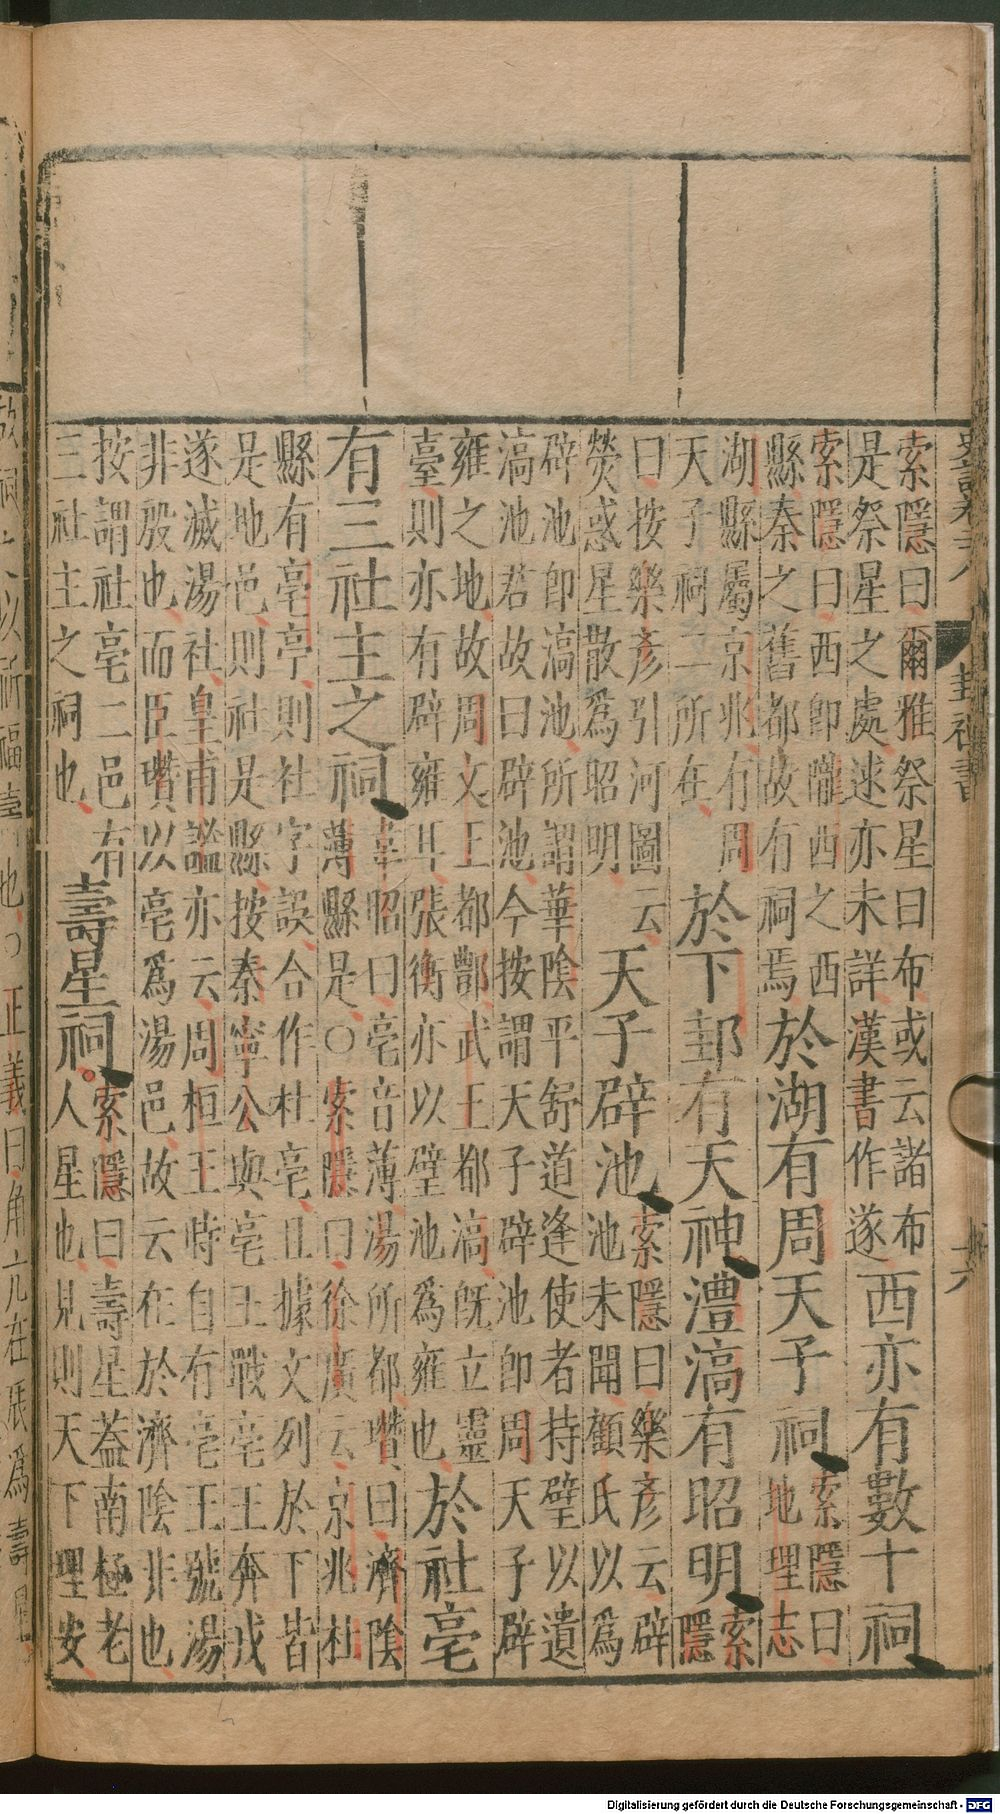 史記卷二十八 封禪書 六
索隱曰爾雅祭星曰布或云諸布
是祭星之處迷亦未詳漢書作遂
西亦有數十祠
索隱曰西即隴西之西
縣秦之舊都故有祠焉
於湖有周天子祠
索隱曰
地理志
湖縣屬京兆有周
天子祠二所在
於下邽有天神灃滈有昭明
索
隱
曰按樂彥引河圖云
熒惑星散爲昭明
天子辟池
索隱曰樂彥云辟
池未聞顧氏以爲
辟池即滈池所謂華陰平舒道逢使者持璧以遺
滈池君故曰辟池今按謂天子辟池即周天子辟
雍之地故周文王都酆武王都滈旣立靈
臺則亦有辟雍耳張衡亦以璧池爲雍也
於社亳
有三社主之祠
韋昭曰亳音薄湯所都瓚曰濟陰
薄縣是〇索隱曰徐廣云京兆杜
縣有亳亭則社字誤合作杜亳且據文列於下皆
是地邑則社是縣按秦寧公與亳王戰亳王奔戎
遂滅湯社皇甫謐亦云周桓王時自有亳王號湯
非殷也而臣瓚以亳爲湯邑故云在於濟陰非也
按謂社亳二邑有
三社主之祠也
壽星祠
索隱曰壽星蓋南極老
人星也見則天下理安
故祠之以祈福壽也〇正義曰角亢在辰爲壽星
Digitalisierung gefördert durch die Deutsche Forschungsgemeinschaft - DFG